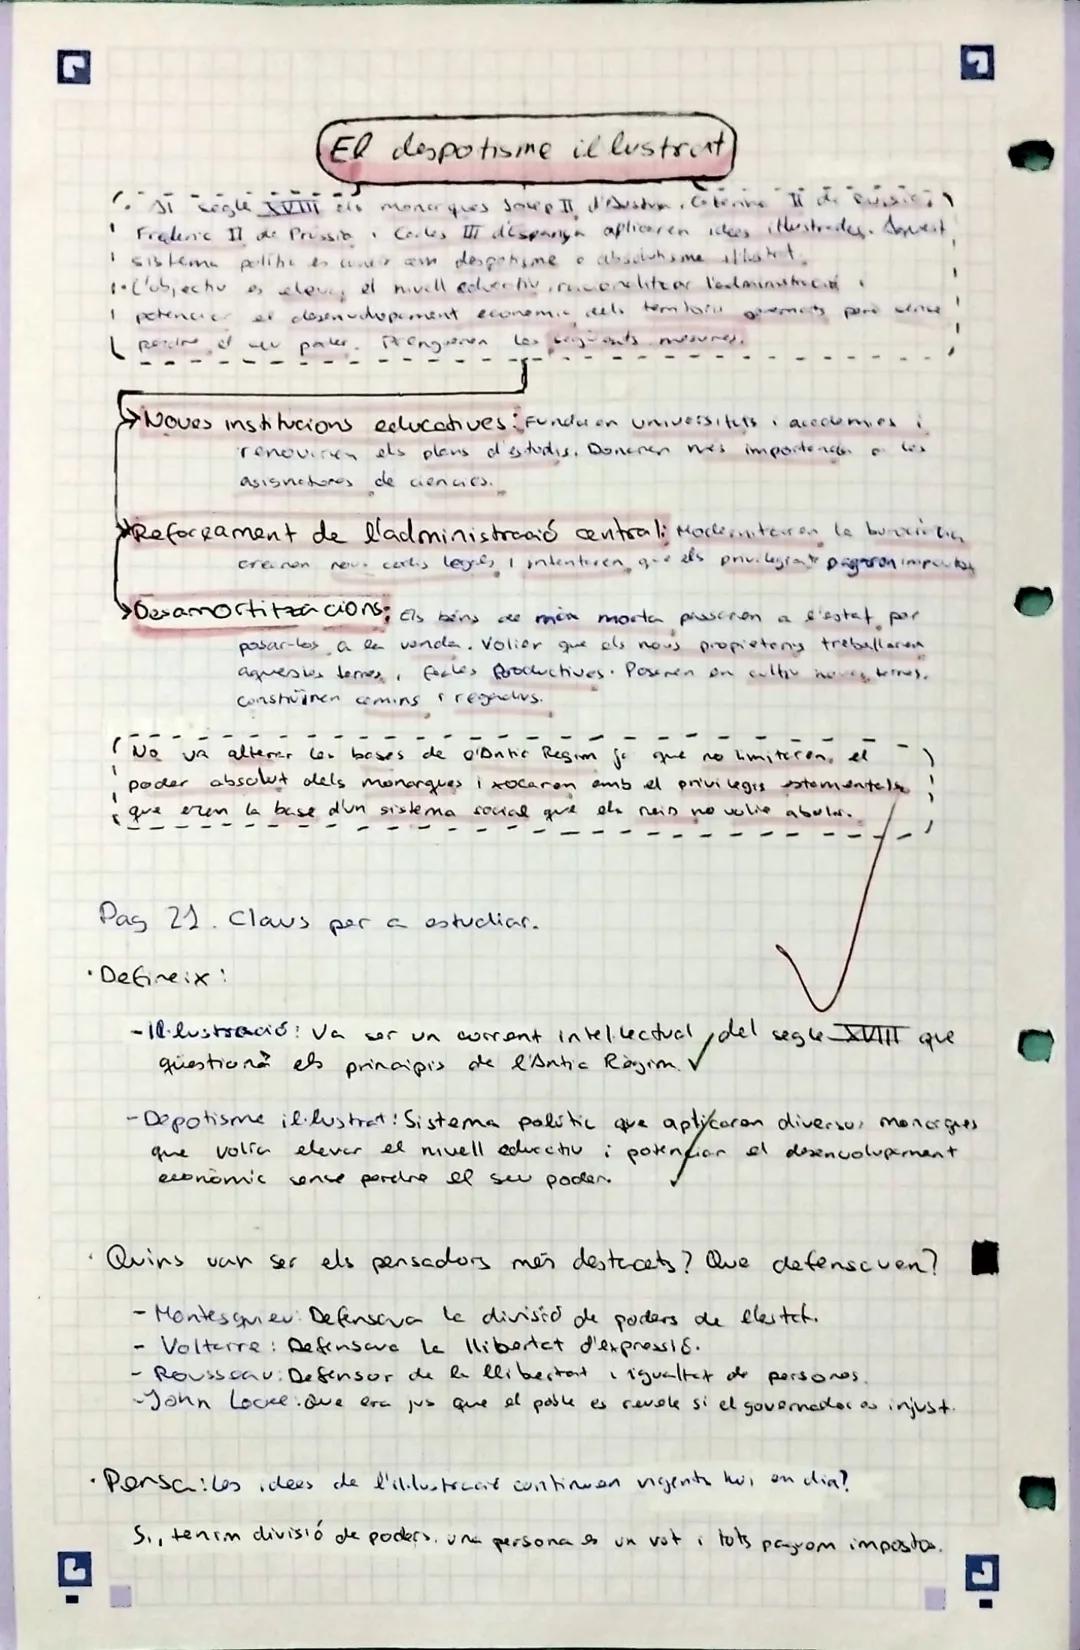 El despotisme il lustrat
· Al segle XVIII els monarques Josep II d'Austria, Caterina II de Russia,
Frederic II de Prussia i Carles III d'Espanya aplicaren idees il·lustrades. Aquest
sistema polític es coneix com despotisme o absolutisme il·lustrat.
· L'objectiu es elevar el nivell educatiu, racionalitzar l'administració i
potenciar el desenvolupament economic dels territoris governats pero sense
perdre el seu poder. Prengueren les següents mesures.
Noves institucions educatives: Fundaren universitats i academies i
renovaren els plans d'estudis. Donaren més importancia a les
asisnatures de ciencies.
Reforçament de l'administració central: Modernitzaren la burocracia,
crearen nous codis legals i intentaren que els privilegiats pagaren impostos
Desamortitzacions: Els béns de mà morta passaren a l'estat per
posar-los a la venda. Volier que els nous propietaris treballaren
aquestes terres i fer-les productives. Posaren en cultiu noves terres,
construïren camins i regadius.
No va alterar les bases de l'Antic Regim ja que no limitaren el
poder absolut dels monarques i xocaren amb el privilegis estamentals
que eren la base d'un sistema social que els reis no volie abolir.
Pag 21. Claus per a estudiar.
· Defineix:
- Il·lustració: Va ser un corrent intel·lectual del segle XVIII que
qüestionà els principis de l'Antic Règim.
- Depotisme il·lustrat: Sistema polític que aplicaren diversos monarques
que volia elevar el nivell educatiu i potenciar el desenvolupament
econòmic sense perdre el seu poder.
· Quins van ser els pensadors més destacats? Que defensaven?
- Montesquieu: Defensava la divisió de poders de l'estat.
- Voltarre: Defensava la llibertat d'expressió.
- Rousseau: Defensor de la llibertat i igualtat de persones.
- John Locke: Que era jus que el poble es revele si el governador es injust.
· Pensa: Les idees de l'il·lustració continuen vigents hui en dia?
Si, tenim divisió de poders, una persona es un vot i tots pagom impostos.